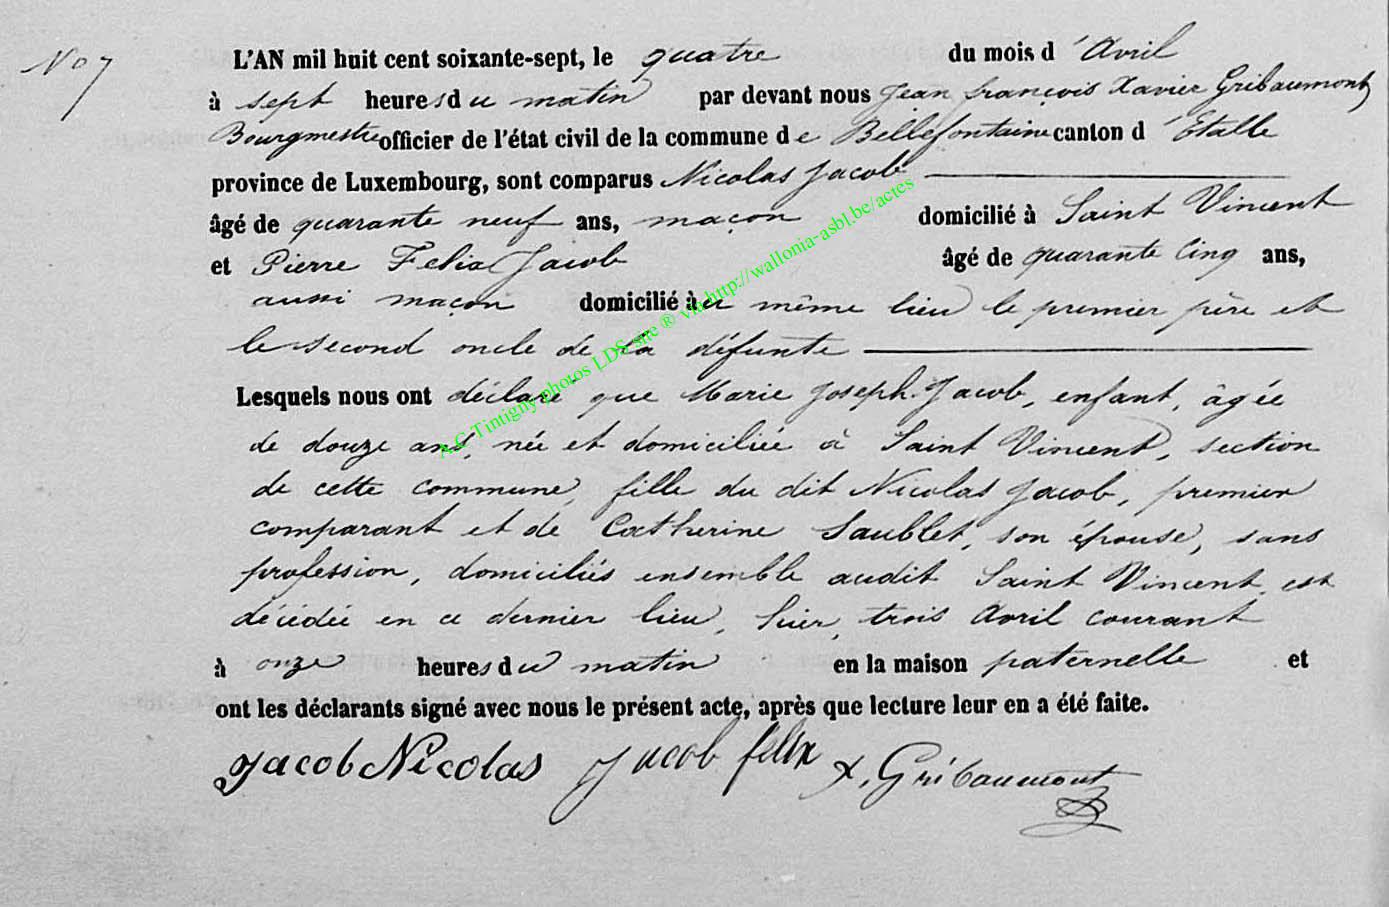 No 7
L'AN mil huit cent soixante-sept, le quatre du mois d'Avril
à sept heures du matin par devant nous Jean françois Xavier Gribaumont
Bourgmestre officier de l'état civil de la commune de Bellefontaine canton d'Etalle
province de Luxembourg, sont comparus Nicolas Jacob
âgé de quarante neuf ans, maçon domicilié à Saint Vincent
et Pierre Felix Jacob âgé de quarante cinq ans,
aussi maçon domicilié au même lieu le premier père et
le second oncle de la défunte
Lesquels nous ont déclaré que Marie Joseph Jacob, enfant, âgée
de douze ans, née et domiciliée à Saint Vincent, section
de cette commune, fille du dit Nicolas Jacob, premier
comparant et de Catherine Saublet, son épouse, sans
profession, domiciliés ensemble audit Saint Vincent, est
décédée en ce dernier lieu, hier, trois Avril courant
à onze heures du matin en la maison paternelle et
ont les déclarants signé avec nous le présent acte, après que lecture leur en a été faite.
Jacob Nicolas Jacob felix X. Gribaumont
A.C Tintigny photos LDS site ® via http://wallonia-asbl.be/actes